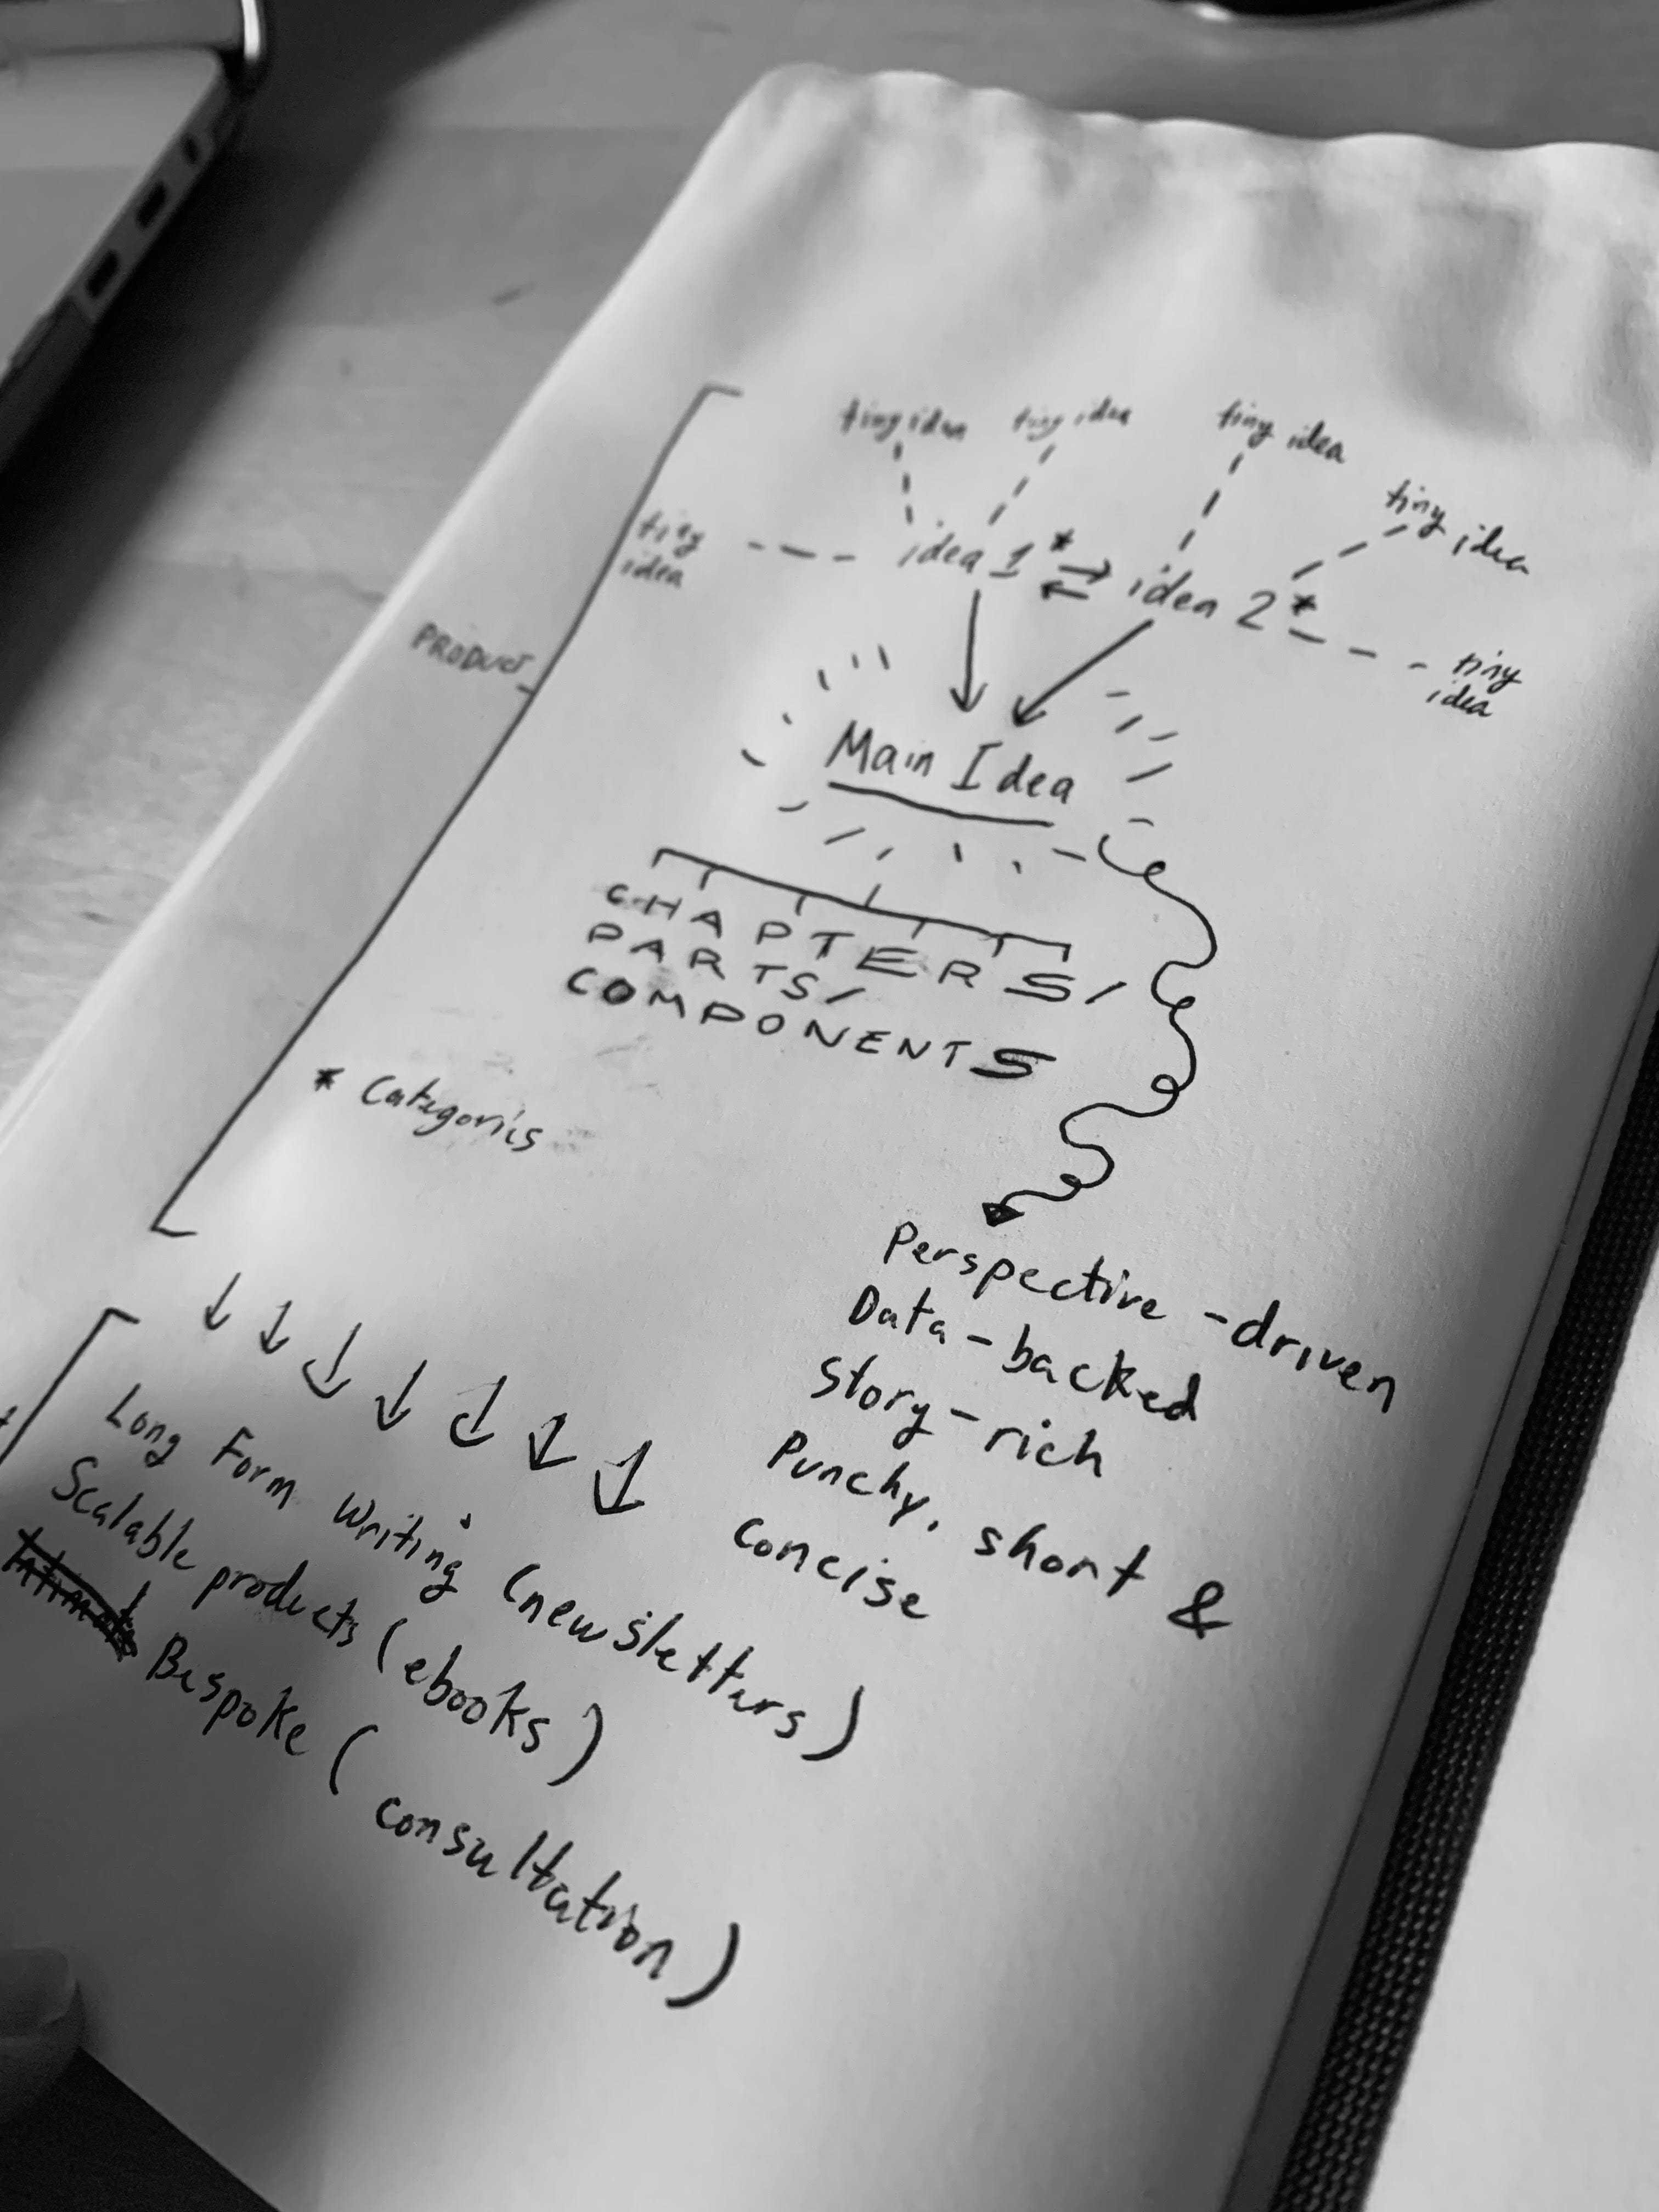 tiny idea
tiny idea
tiny idea
tiny idea
tiny
idea
idea 1*
idea 2*
tiny
idea
PRODUCT
Main Idea
CHAPTERS/
PARTS/
COMPONENTS
* Categories
Perspective-driven
Data-backed
Story-rich
Punchy, short &
concise
Long Form Writing (newsletters)
Scalable products (ebooks)
Bespoke (consultation)